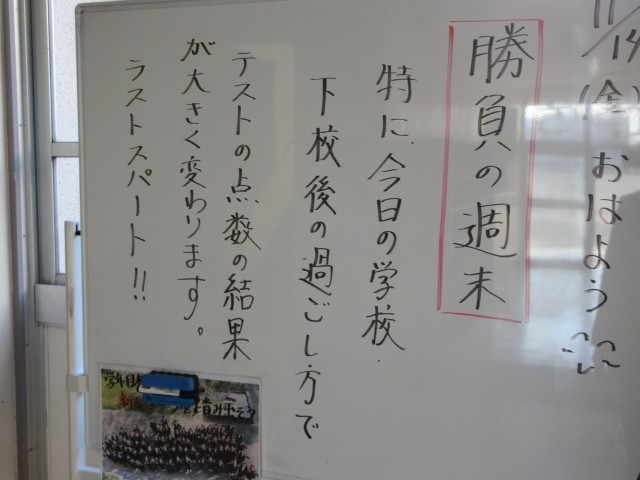 11/14(金) おはよう
勝負の週末
特に、今日の学校.
下校後の過ごし方で
テストの点数の結果
が大きく変わります。
ラストスパート!!